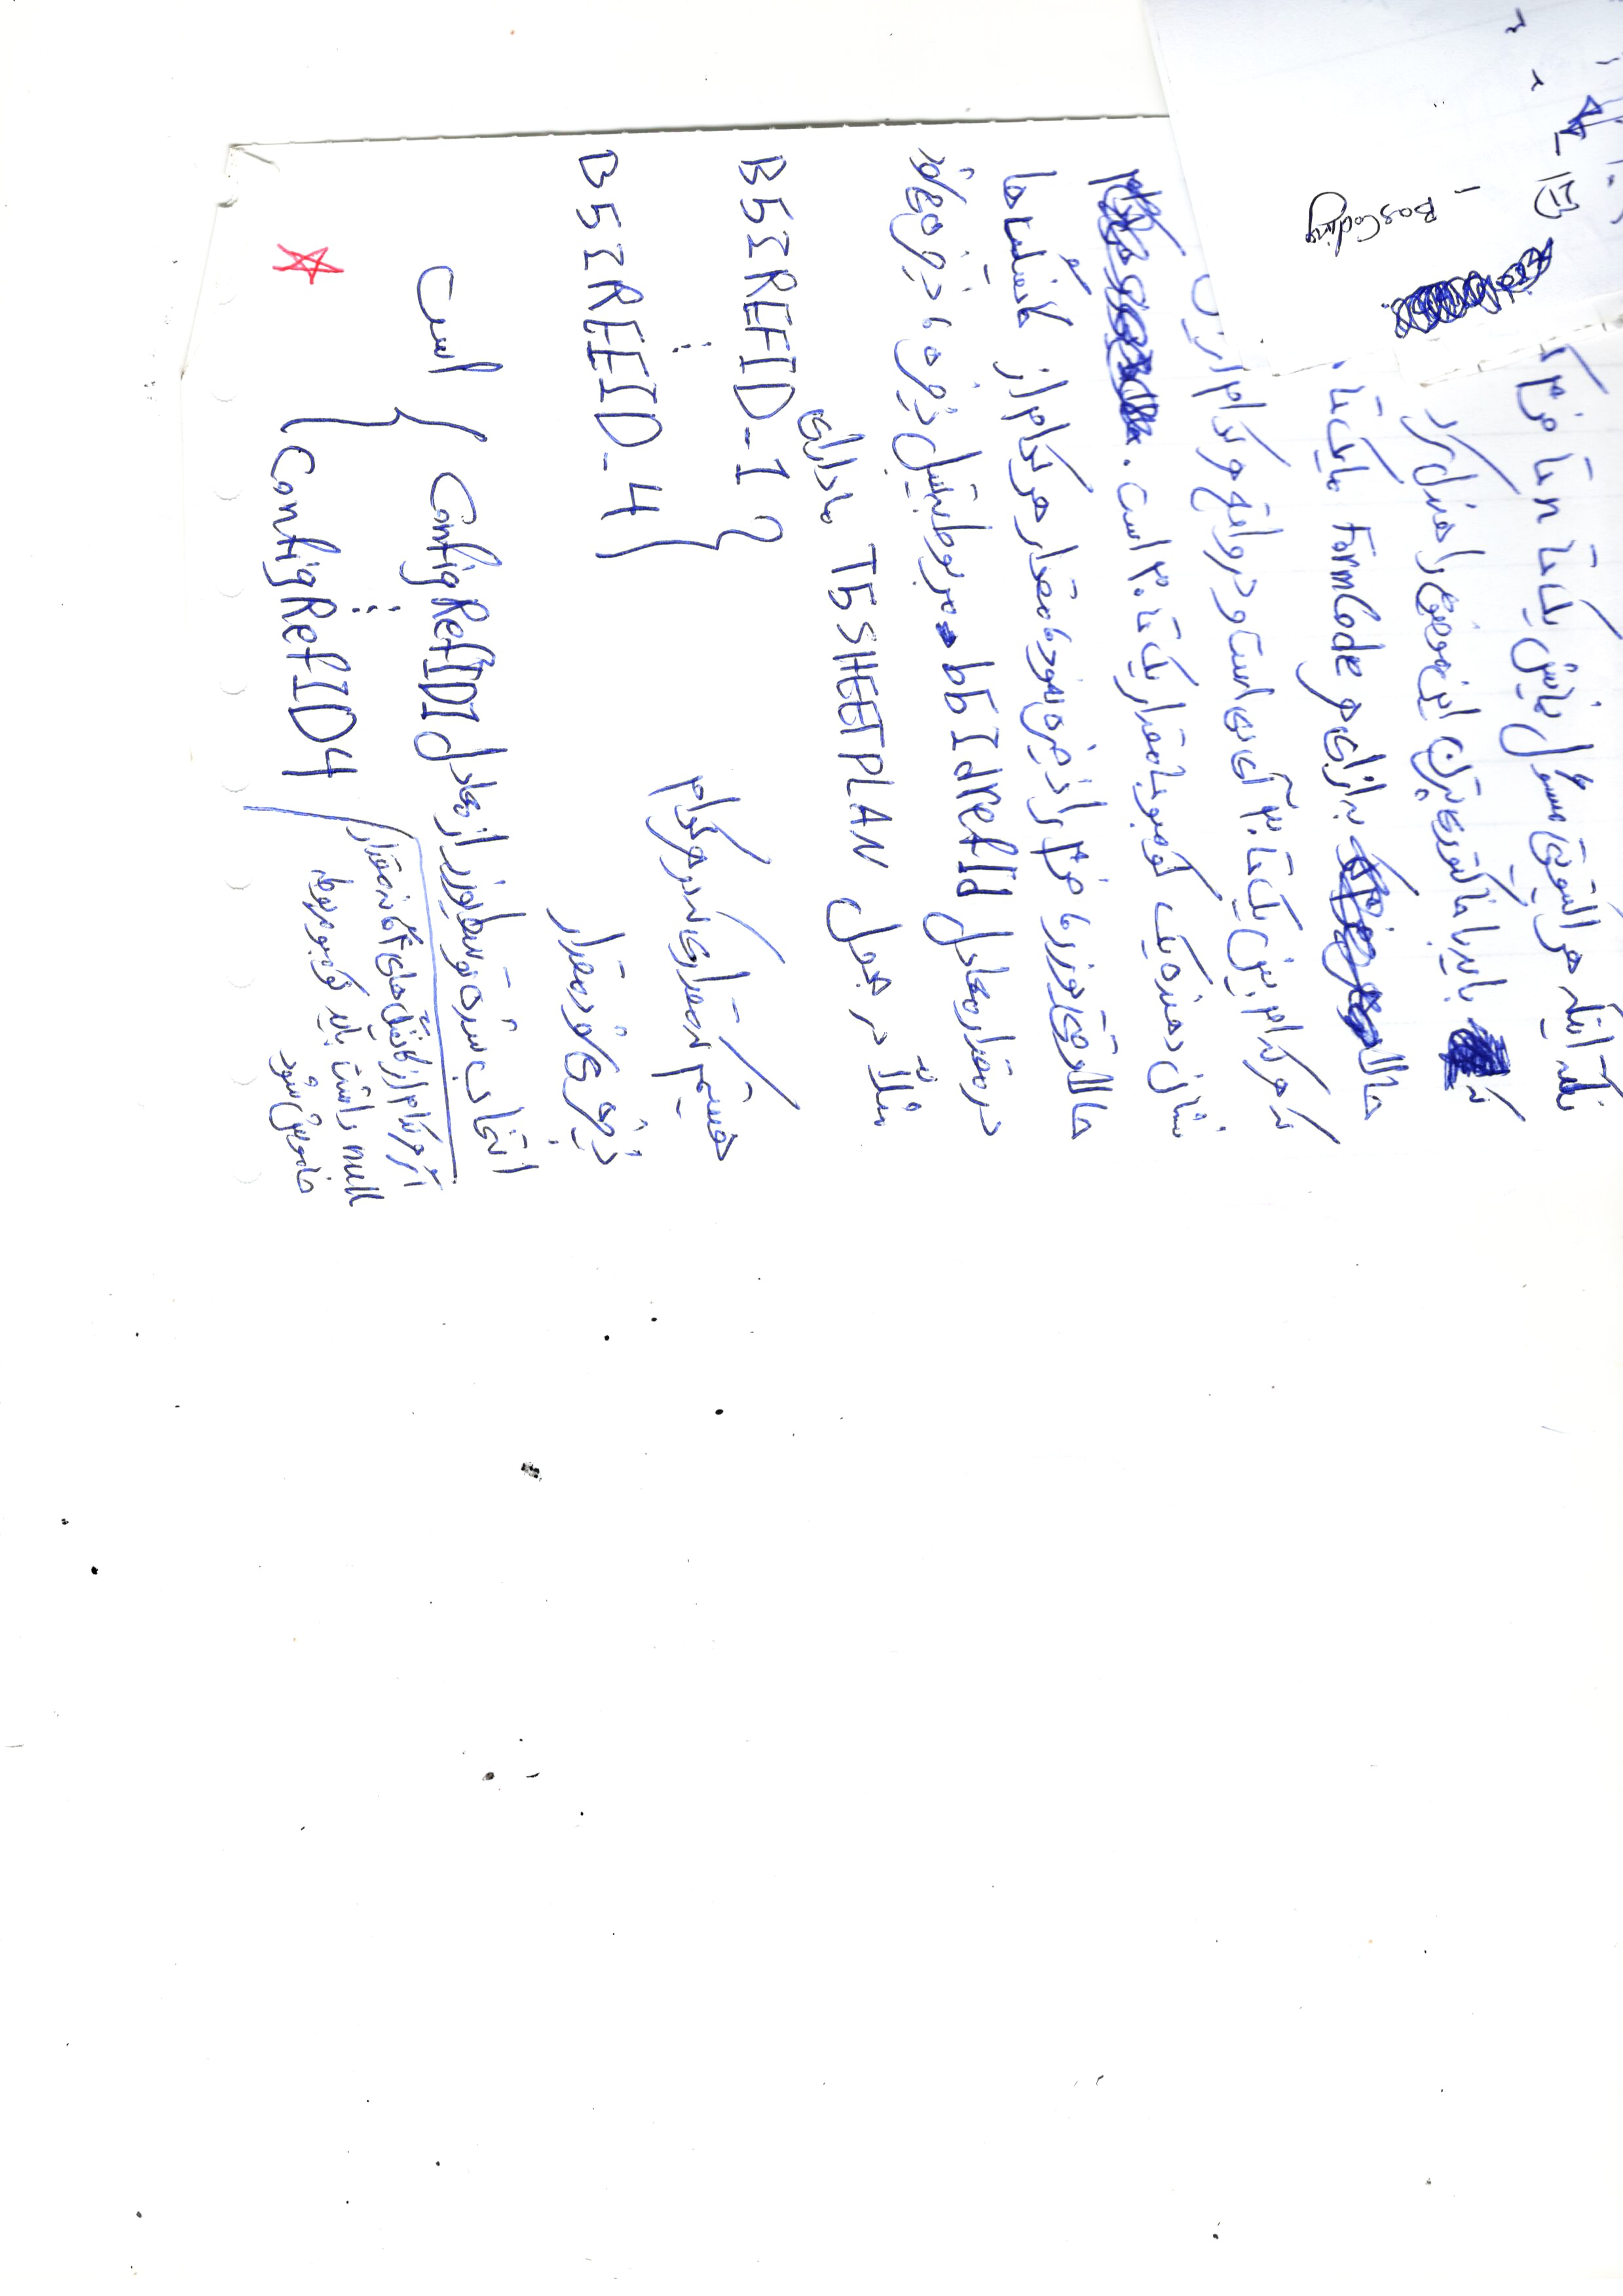 نکته اینکه هر اکتیویتی مسئول نمایش یک تا n تا فرم
که باید با فاکتوری پترن این موضوع را هندل کرد
حالا به ازای هر FormCode ما یک تا
که هر کدام بین یک تا ۳۰ آی دی است و در واقع هر کدام از
نشان دهنده یک کومبو با مقدار یک تا ۳۰ است.
حالا وقتی یوزر، فرم را ذخیره نمود، مقدار هر کدام از کانفیگ ها
در مقدار معادل b5IdrefId مربوط به تیبل ذخره، ذخره می شود
مثلاً در جدول T5SHEETPLAN ما دارای
B5IREFID_1
⋮
B5IREFID_4
هستیم که مقداری که در هر کدام
ذخره می شود مقدار
انتخاب شده توسط یوزر از معادل ConfigRefID1
⋮
ConfigRefID4
است
اگر هر کدام از کانفیگ های ۴ گانه مقدار
null داشت باید کومبو مربوطه
خاموش شود
ID
- BasCoding